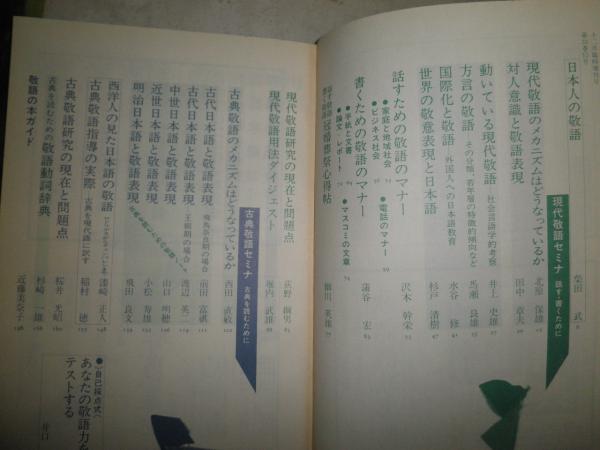 日本人の敬語 柴田 武
現代敬語セミナ 話す・書くために
現代敬語のメカニズムはどうなっているか 北原 保雄
対人意識と敬語表現 田中 章夫
動いている現代敬語 社会言語学的考察 井上 史雄
方言の敬語 その分類、若年層の特徴的傾向など 馬瀬 良雄
国際化と敬語 外国人への日本語教育 水谷 修
世界の敬意表現と日本語 杉戸 清樹
話すための敬語のマナー 沢木 幹栄
●家庭と地域社会
●ビジネス社会
●電話のマナー
書くための敬語のマナー 蒲谷 宏
●手紙と文書
●論文・レポート
●マスコミの文章
冠婚葬祭心得帖 細川 英雄
現代敬語研究の現在と問題点 荻野 綱男
現代敬語用法ダイジェスト 堀内 武雄
古典敬語セミナ 古典を読むために
古典敬語のメカニズムはどうなっているか 西田 直敏
古代日本語と敬語表現 飛鳥奈良期の場合 前田 富祺
古代日本語と敬語表現 王朝期の場合 渡辺 英二
中世日本語と敬語表現 山口 明穂
近世日本語と敬語表現 小松 寿雄
明治日本語と敬語表現 飛田 良文
西洋人の見た日本語の敬語 漆崎 正人
古典敬語指導の実際 古典を現代語に訳す 稲村 徳
古典敬語研究の現在と問題点 桜井 光昭
古典を読むための敬語動詞辞典 杉崎 一雄
敬語の本ガイド 近藤美奈子
●〈自己採点式〉
あなたの敬語力を
テストする
井口